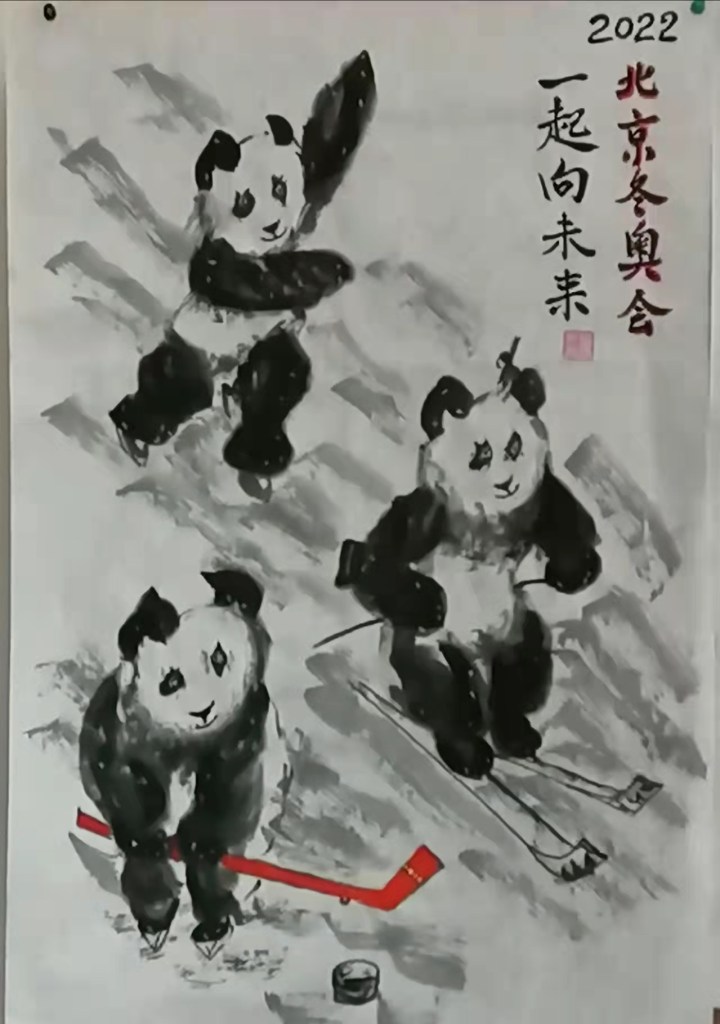 2022
北京冬奥会
一起向未来